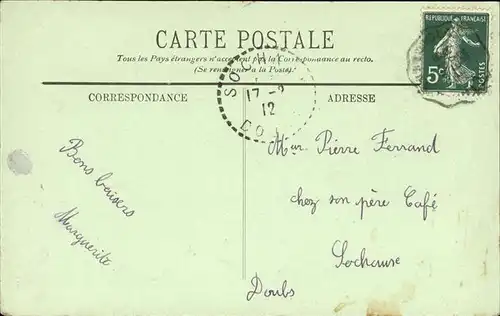 CARTE POSTALE
Tous les Pays étrangers n'acceptent pas la Correspondance au recto.
(Se renseigner à la Poste)
CORRESPONDANCE
ADRESSE
RÉPUBLIQUE FRANÇAISE
5c
POSTES
17-
12
Bons baisers
Marguerite
Mr Pierre Ferrand
chez son père Café
Sochause
Doubs